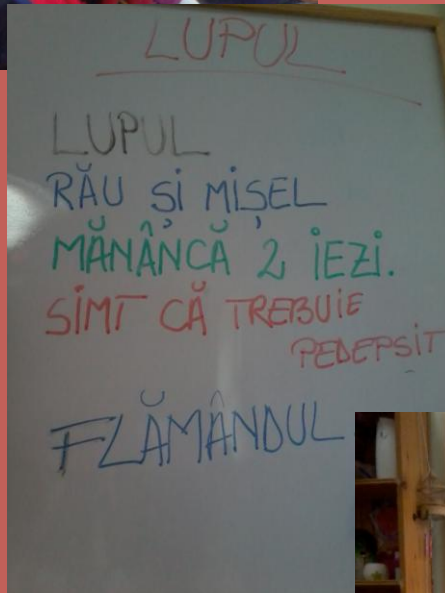 LUPUL
LUPUL
RĂU ȘI MIȘEL
MĂNÂNCĂ 2 IEZI.
SIMT CĂ TREBUIE
PEDEPSIT
FLĂMÂNDUL